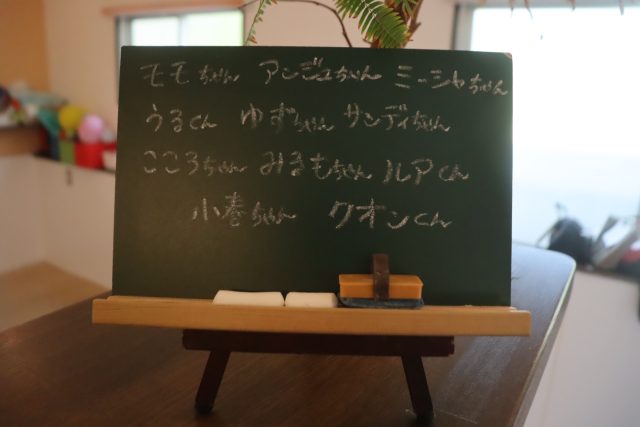 モモちゃん アンジュちゃん ミーシャちゃん
うるくん ゆずちゃん サンディちゃん
こころちゃん みるもちゃん ルアくん
小春ちゃん クオンくん